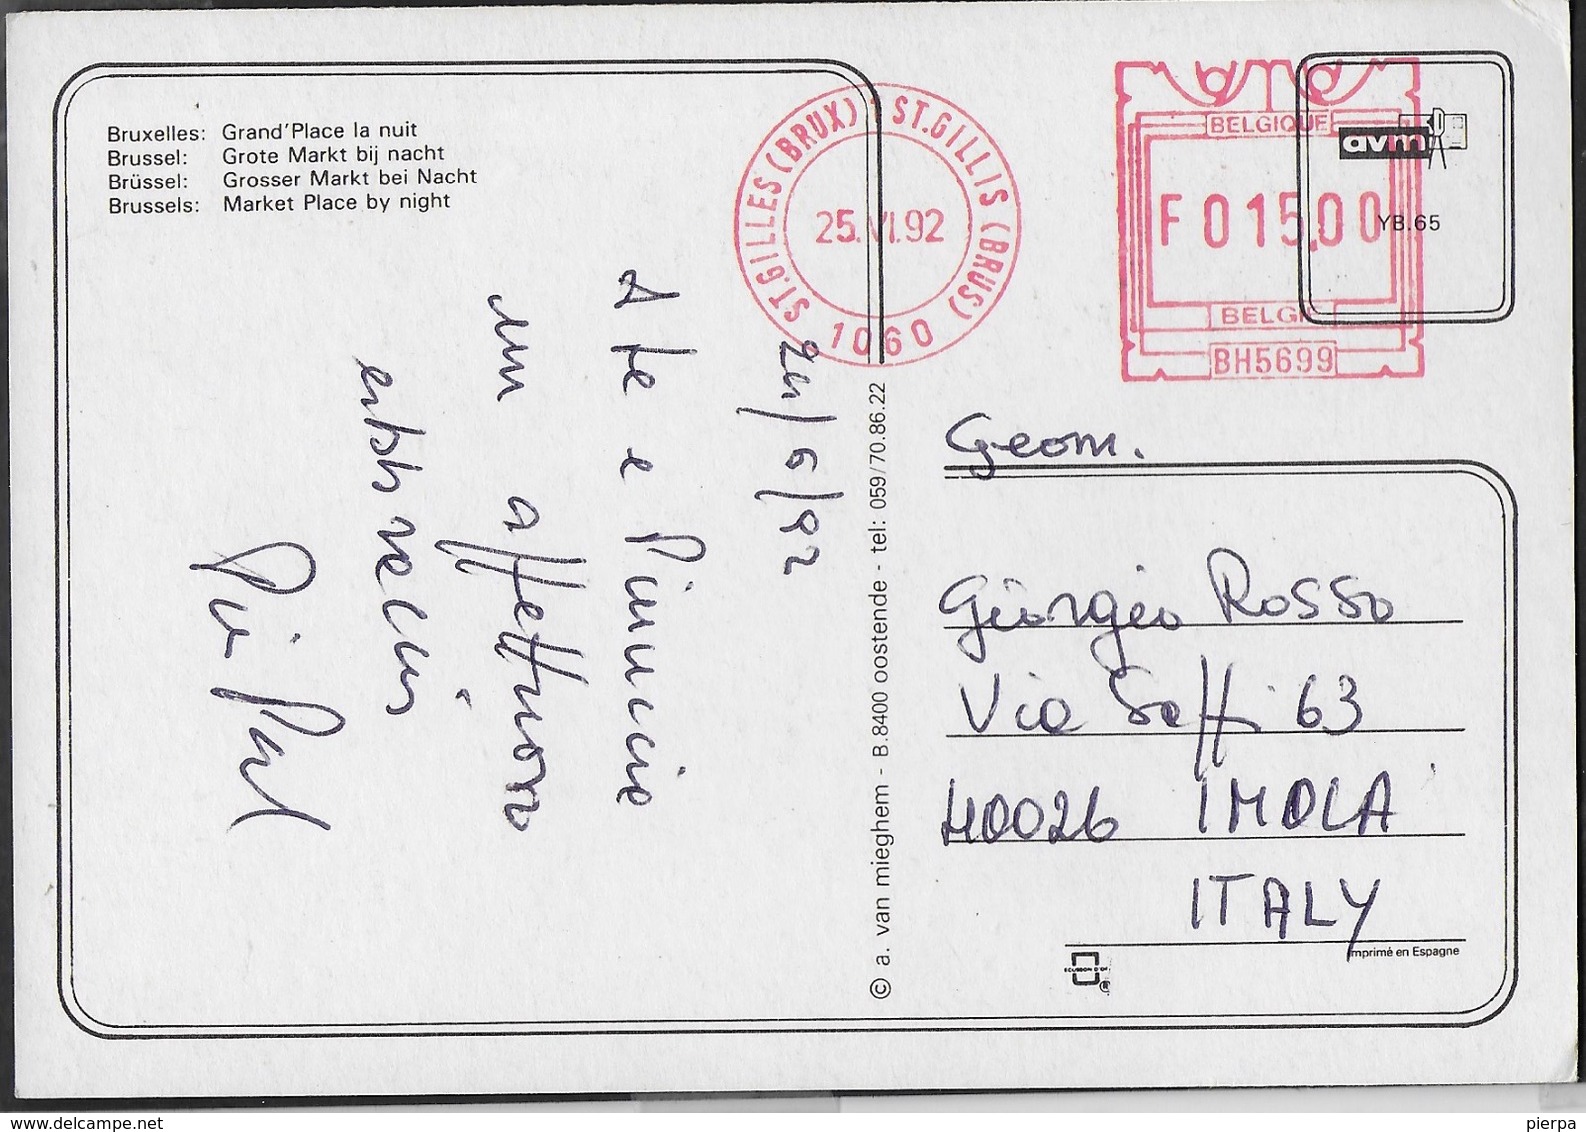 Bruxelles: Grand'Place la nuit
Brussel: Grote Markt bij nacht
Brüssel: Grosser Markt bei Nacht
Brussels: Market Place by night
ST.GILLES (BRUX) - ST.GILLIS (BRUS)
25.VI.92
1060
BELGIQUE
F 015,00
BELGIË
BH5699
avm
YB.65
24/6/92
A te e Pinuccie
un affettuoso
Geom.
Giorgio Rosso
Via Saffi 63
40026 IMOLA
ITALY
© a. van mieghem - B.8400 oostende - tel: 059/70.86.22
ECUSSON D'OR
®
Imprimé en Espagne
www.delcampe.net
pierpa